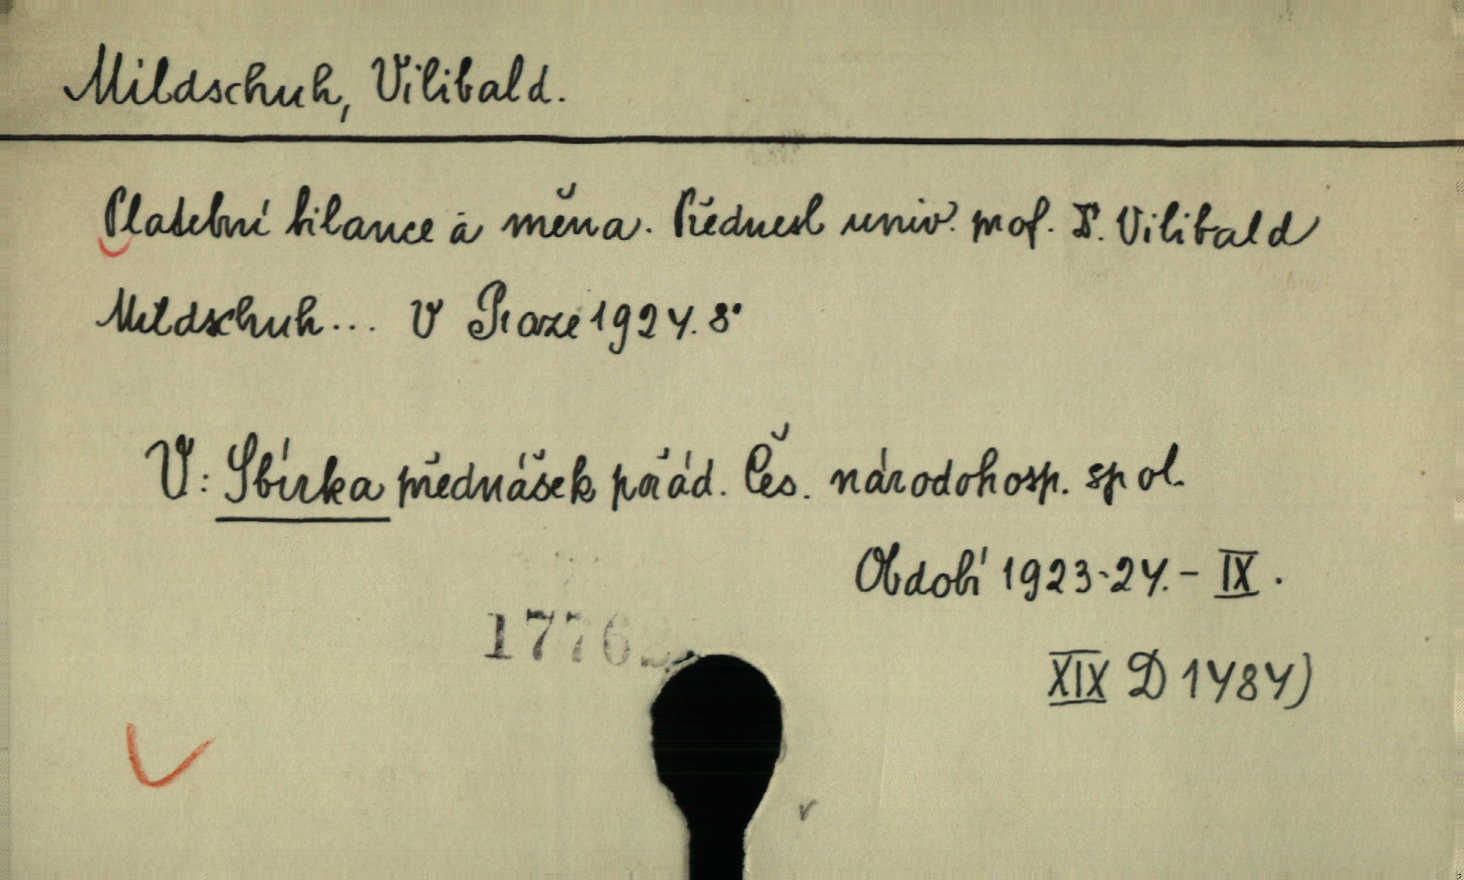 Mildschuh, Vilibald.
Platební bilance a měna. Přednesl univ. prof. Dr. Vilibald
Mildschuh... V Praze 1924. 8°
V: Sbírka přednášek pořád. Čes. národohosp. spol.
Období 1923-24. - IX.
XIX D 1484)